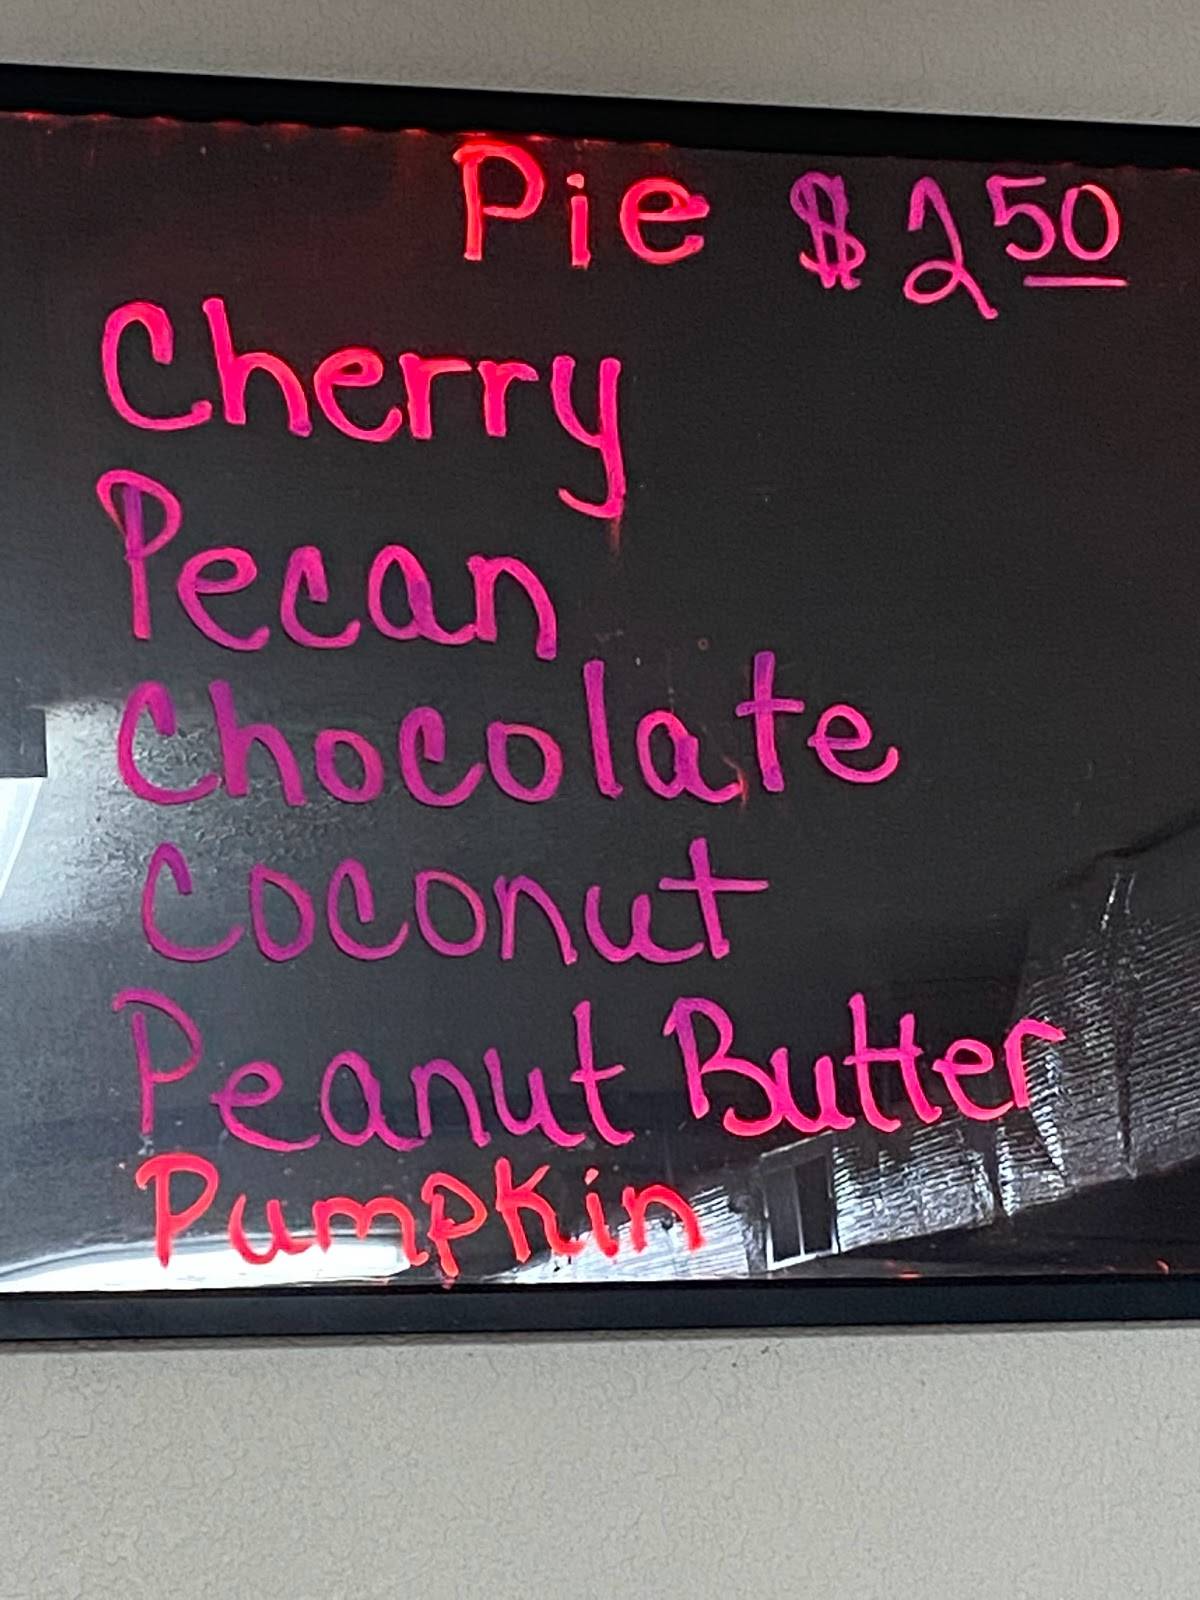 Pie $2.50
Cherry
Pecan
Chocolate
Coconut
Peanut Butter
Pumpkin